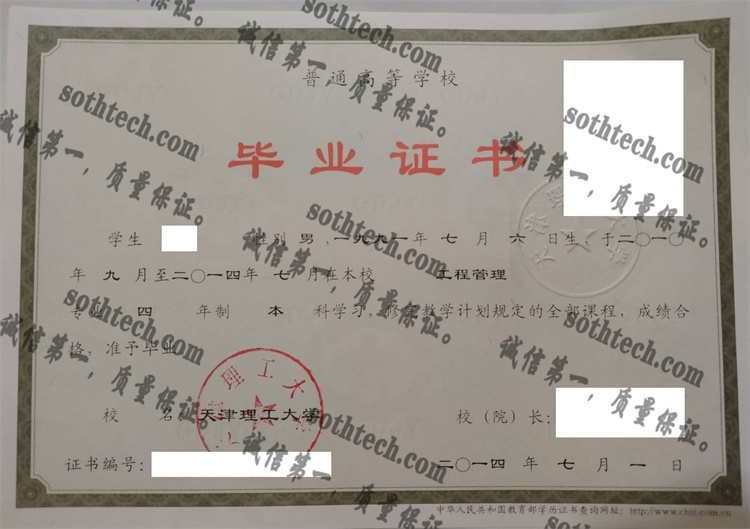 普通高等学校
毕业证书
学生 性别 男，一九九一年 七 月 六 日生，于二〇一〇
年 九 月至二〇一四年 七 月在本校 工程管理
专业 四 年制 本 科学习，修完教学计划规定的全部课程，成绩合
格，准予毕业。
校 名：天津理工大学
校（院）长：
证书编号：
二〇一四 年 七 月 一 日
中华人民共和国教育部学历证书查询网址：http://www.chsi.com.cn
天津理工大学
sothtech.com
诚信第一，质量保证。
sothtech.com
诚信第一，质量保证。
sothtech.com
诚信第一，质量保证。
sothtech.com
诚信第一，质量保证。
sothtech.com
诚信第一，质量保证。
sothtech.com
诚信第一，质量保证。
sothtech.com
诚信第一，质量保证。
sothtech.com
诚信第一，质量保证。